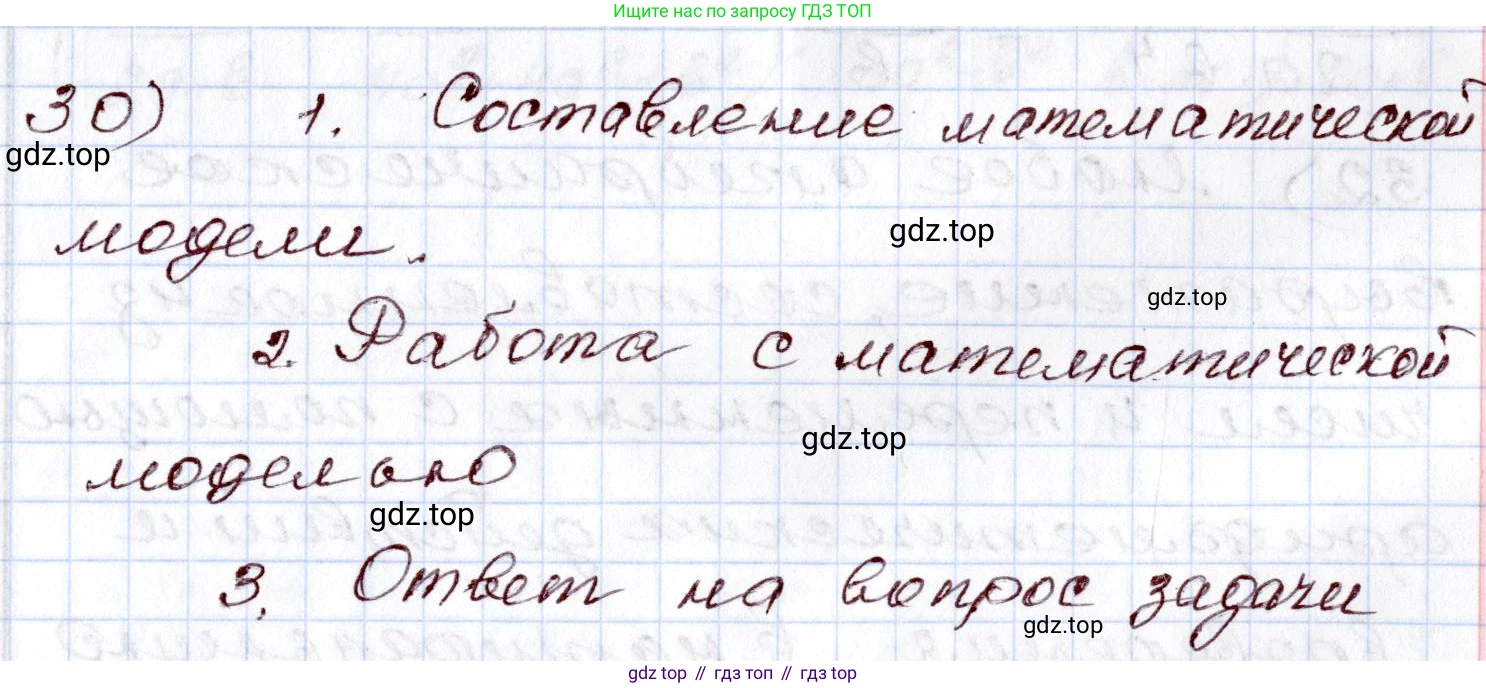 Ищите нас по запросу ГДЗ ТОП
30) 1. Составление математической
gdz.top
модели.
gdz.top
gdz.top
2. Работа с математической
gdz.top
моделью
gdz.top
3. Ответ на вопрос задачи
gdz.top
gdz.top // гдз топ // гдз top